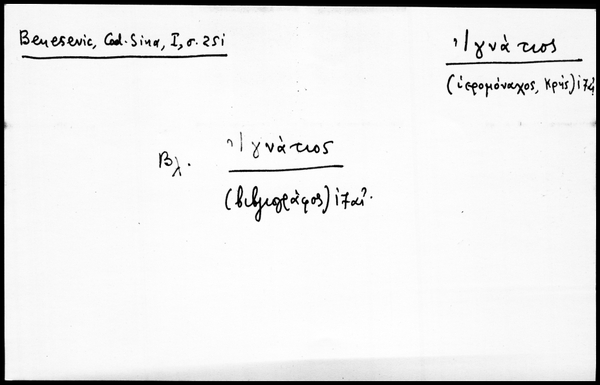 Benesevic, Cod. Sina, I, σ. 251
Ἰγνάτιος
(ἱερομόναχος, Κρής) ιζαι
Βλ. Ἰγνάτιος
(βιβλιογράφος) ιζαι.